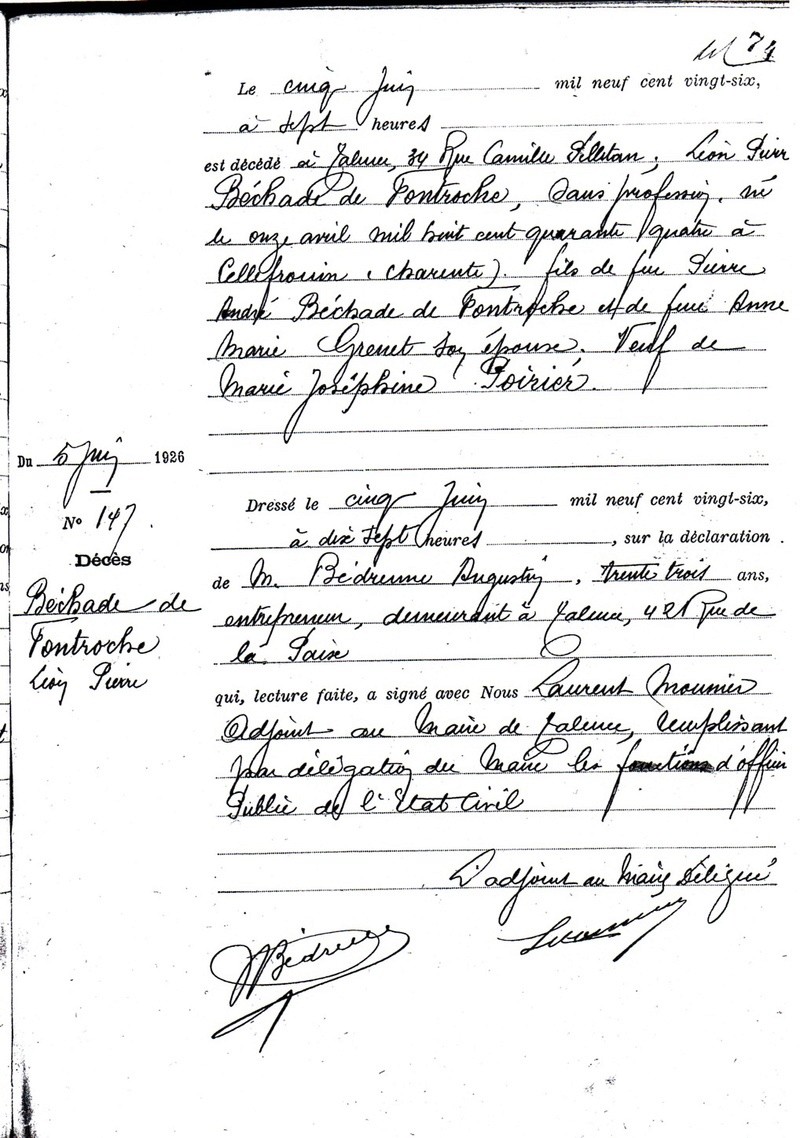 74
Le cinq Juin mil neuf cent vingt-six,
à sept heures
est décédé à Talence, 34 Rue Camille Pelletan, Léon Pierre
Béchade de Fontroche, sans profession, né
le onze avril mil huit cent quarante quatre à
Cellefrouin (Charente). fils de feu Pierre
André Béchade de Fontroche et de feue Anne
Marie Grenet son épouse. Veuf de
Marie Joséphine Poirier.
Du 5 Juin 1926
N° 147.
Décès
Béchade de
Fontroche
Léon Pierre
Dressé le cinq Juin mil neuf cent vingt-six,
à dix sept heures, sur la déclaration
de M. Bédrenne Augustin, trente trois ans,
entrepreneur, demeurant à Talence, Rue de
la Paix
qui, lecture faite, a signé avec Nous Laurent Mounier
Adjoint au Maire de Talence, remplissant
par délégation du Maire les fonctions d'officier
Public de l'Etat Civil
L'adjoint au Maire Délégué
Bédrenne